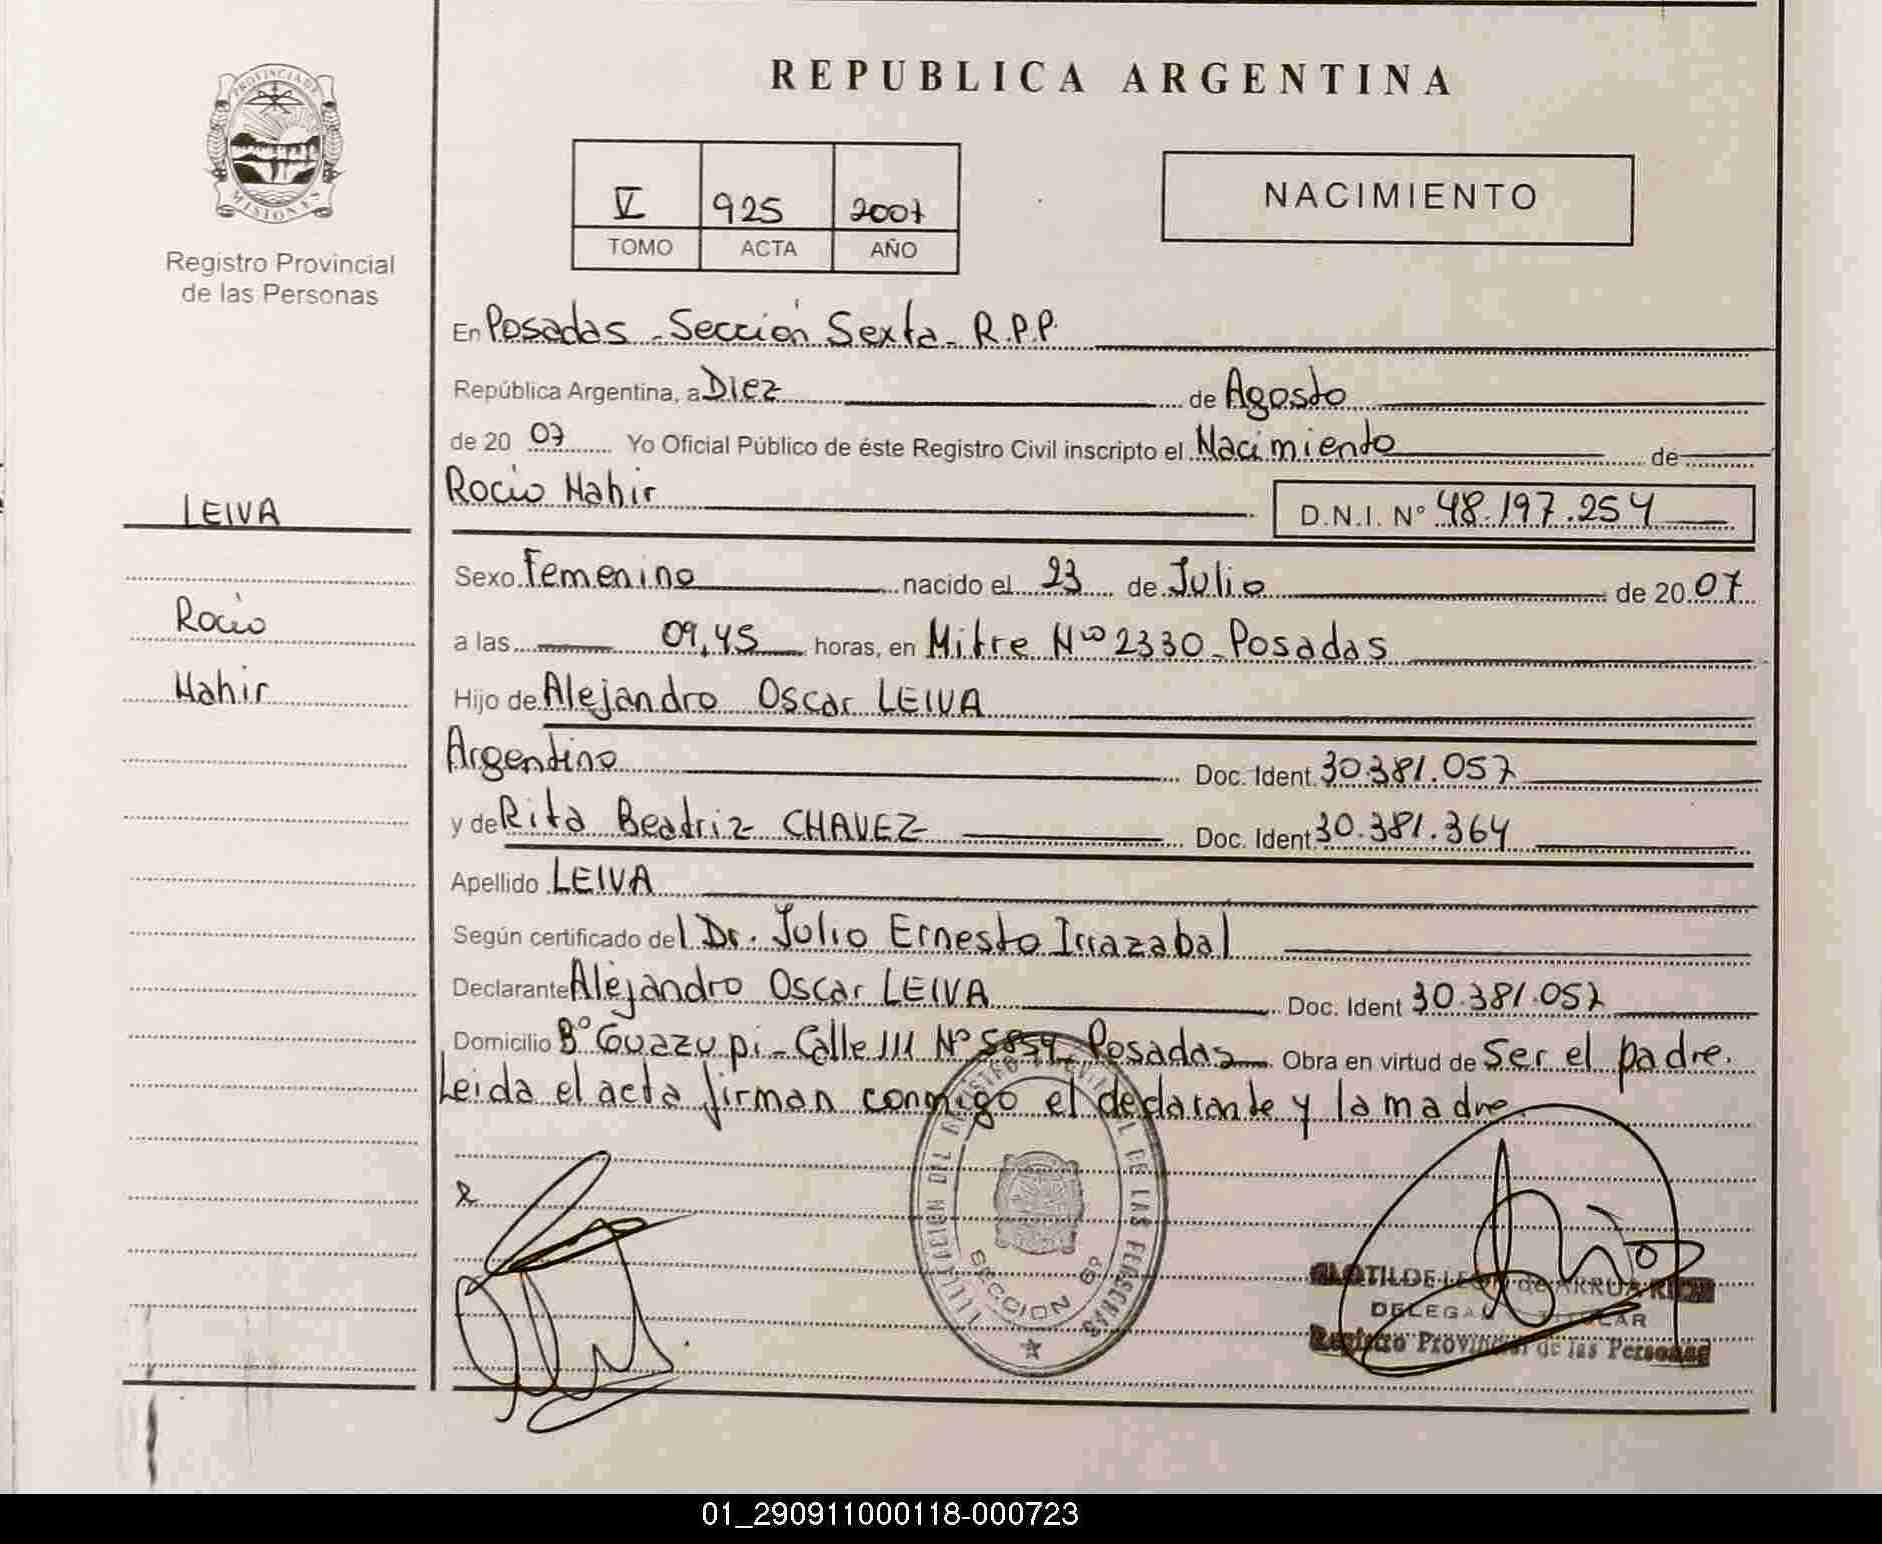 PROVINCIA DE
MISIONES
Registro Provincial
de las Personas
LEIVA
Rocio
Nahir
REPUBLICA ARGENTINA
V 925 2007
TOMO ACTA AÑO
NACIMIENTO
En Posadas - Sección Sexta - R.P.P.
República Argentina, a Diez de Agosto
de 20 07 Yo Oficial Público de éste Registro Civil inscripto el Nacimiento de
Rocio Nahir D.N.I. N° 48.197.254
Sexo Femenino nacido el 23 de Julio de 20 07
a las 09,45 horas, en Mitre Nº 2330 - Posadas
Hijo de Alejandro Oscar LEIVA
Argentino Doc. Ident. 30.381.057
y de Rita Beatriz CHAVEZ Doc. Ident 30.381.364
Apellido LEIVA
Según certificado del Dr. Julio Ernesto Irrazabal
Declarante Alejandro Oscar LEIVA Doc. Ident 30.381.057
Domicilio B° Guazupi - Calle 111 N° 5859 - Posadas Obra en virtud de Ser el padre.
Leida el acta firman conmigo el declarante y la madre.
DE LAS PERSONAS
SECCION 6ª
CLOTILDE LEON de ARRUA
DELEGADA TITULAR
Registro Provincial de las Personas
01_290911000118-000723